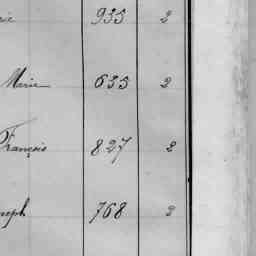 rie 935 2
Marie 635 2
François 827 2
seph 768 2